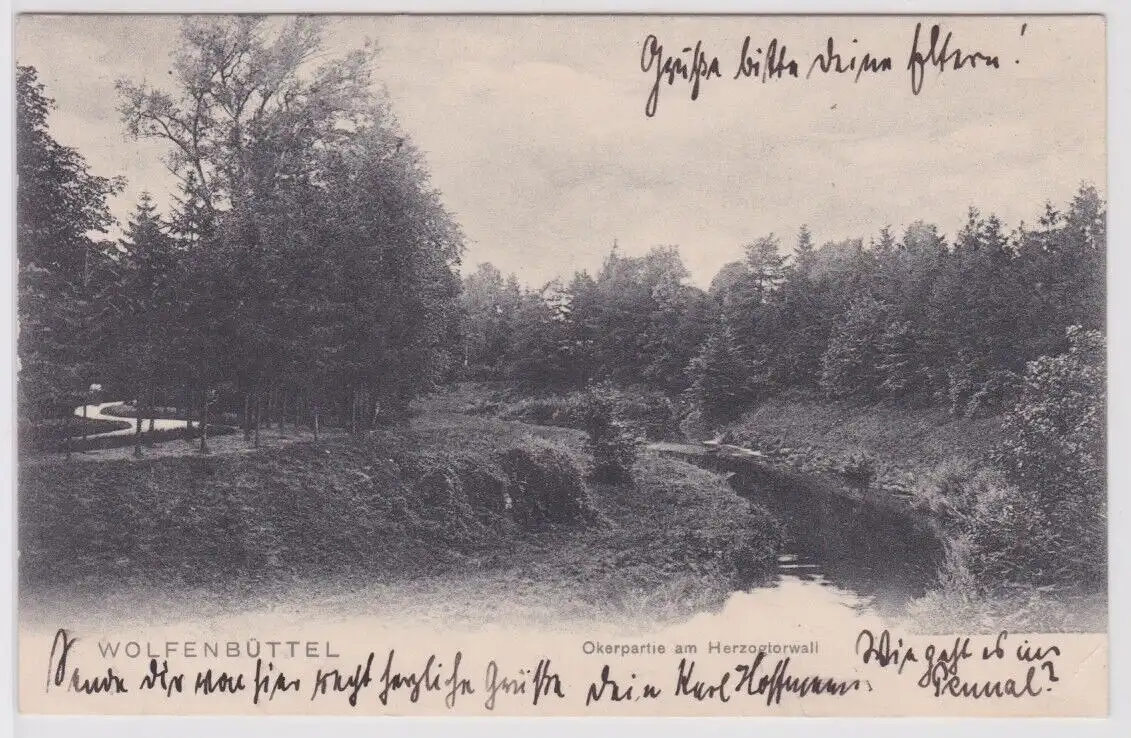 Grüße bitte deine Eltern!
WOLFENBÜTTEL
Okerpartie am Herzogtorwall
Sende dir von hier recht herzliche Grüße dein Karl Hoffmann.
Wie geht es im
Pennal?